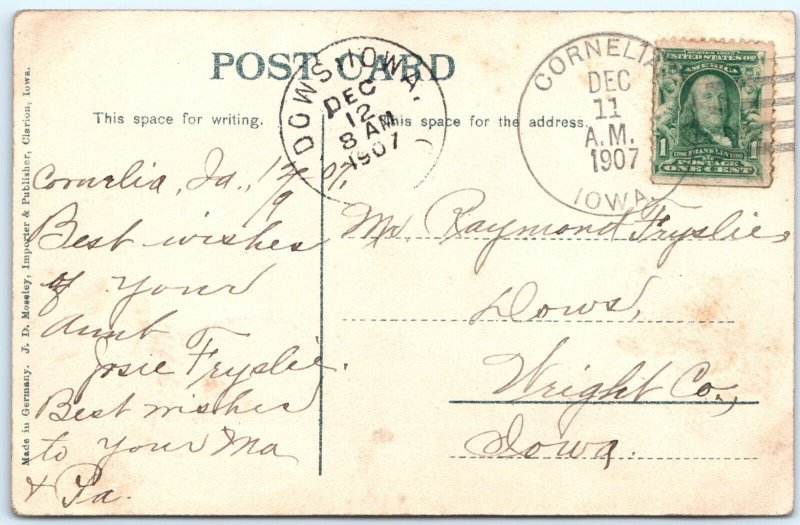 POST CARD
This space for writing.
This space for the address.
DOWS, IOWA.
DEC
12
8 AM
1907
CORNELIA
DEC
11
A.M.
1907
IOWA
SERIES 1902
UNITED STATES OF
AMERICA
1 FRANKLIN 1
POSTAGE
ONE CENT
Made in Germany. J. D. Moseley, Importer & Publisher, Clarion, Iowa.
Cornelia, Ia.,
Best wishes
of your
aunt
Josie Fryslie.
Best wishes
to your Ma
& Pa.
Mr. Raymond Fryslie,
Dows,
Wright Co.,
Iowa.